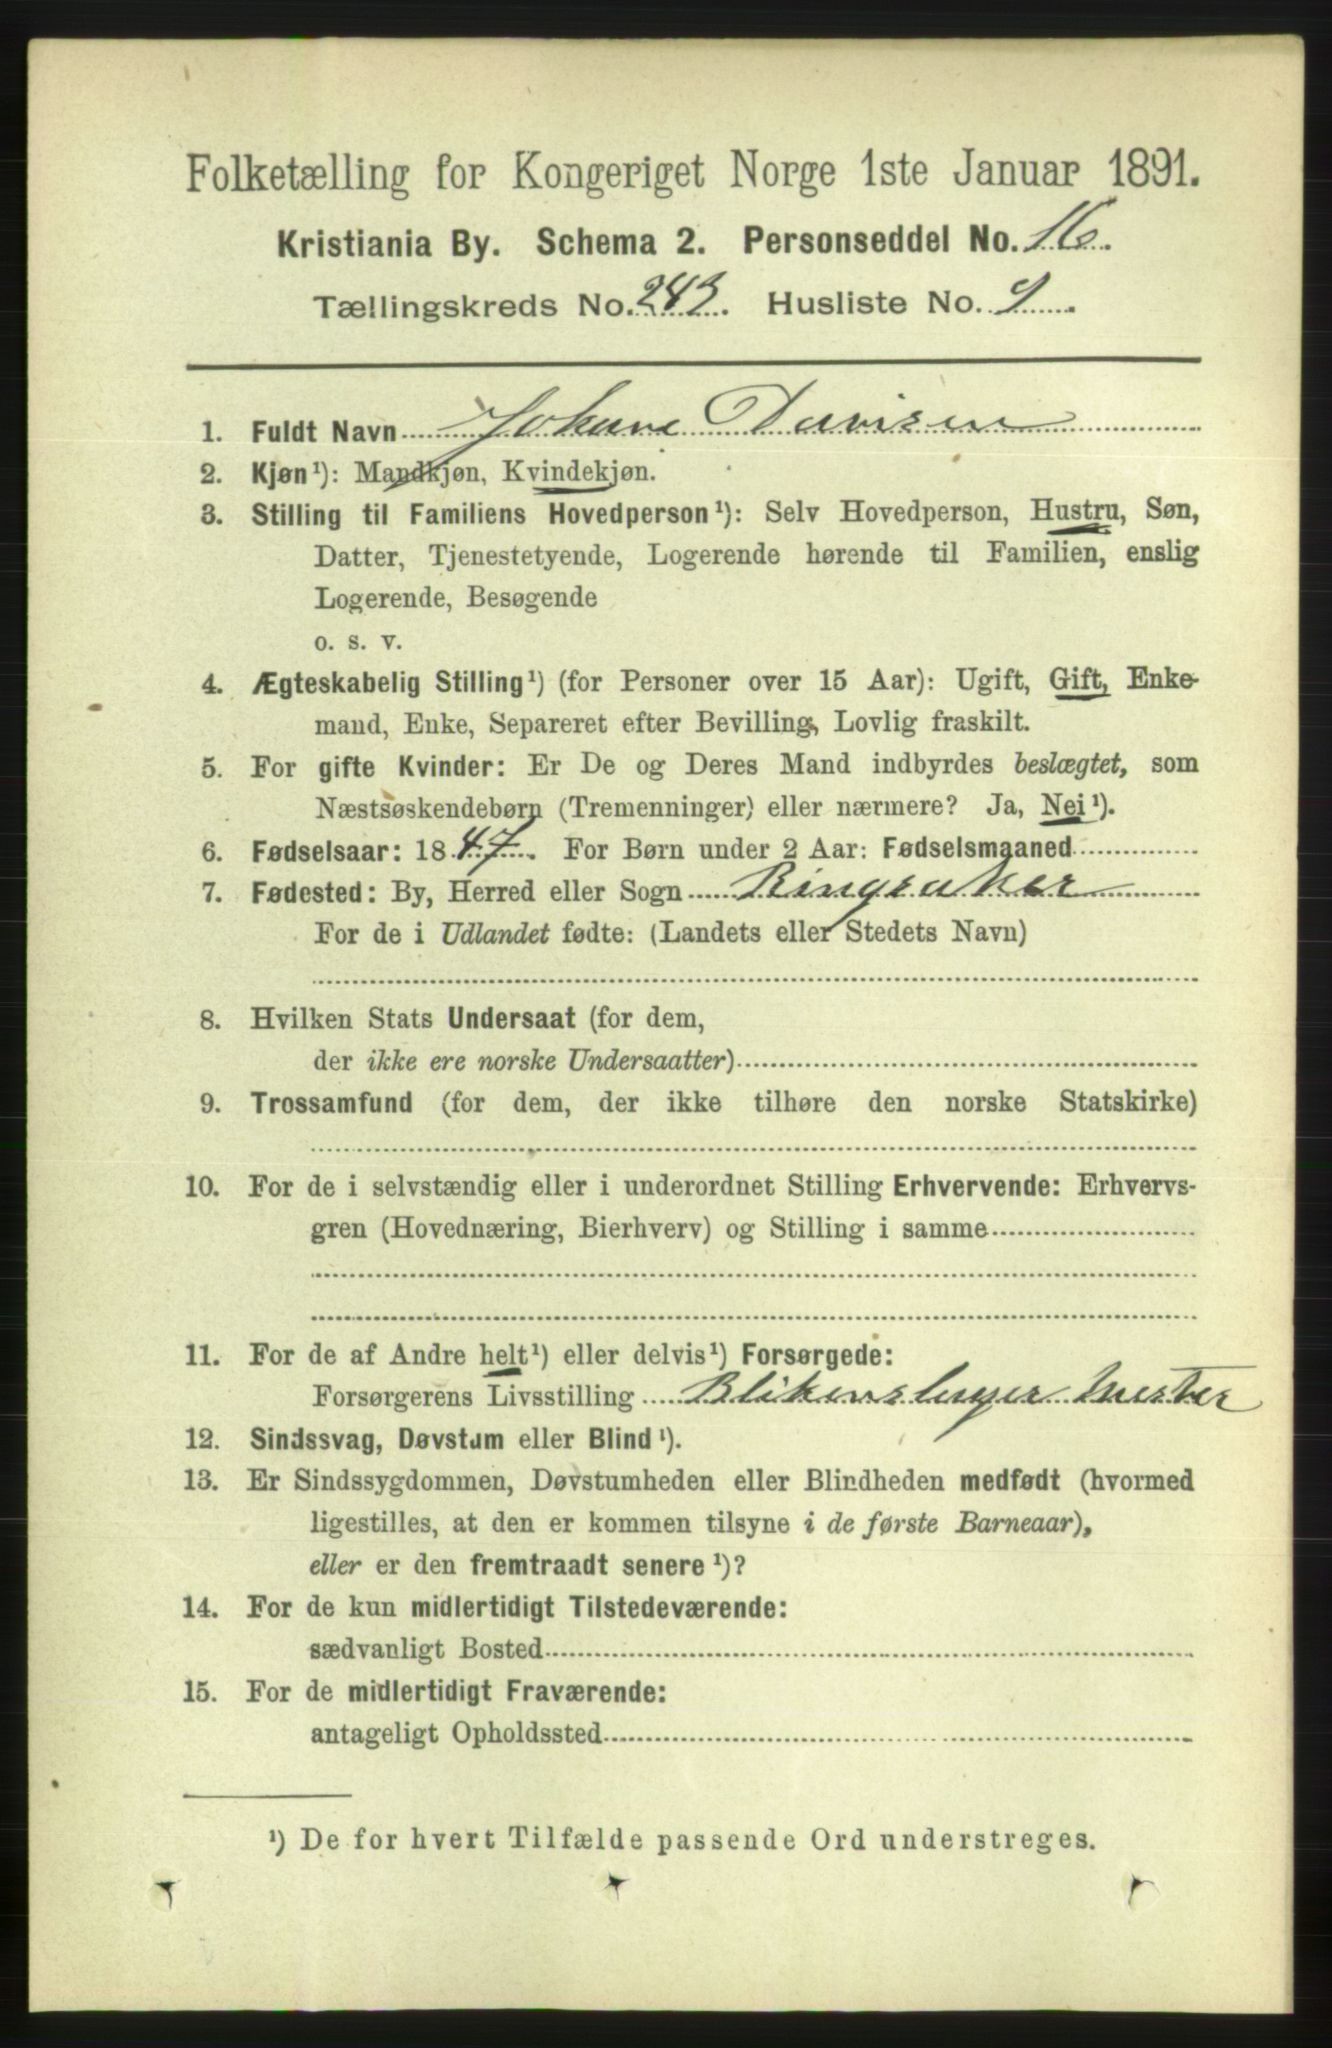 Folketælling for Kongeriget Norge 1ste Januar 1891.
Kristiania By. Schema 2. Personseddel No. 16.
Tællingskreds No. 243. Husliste No. 9
1. Fuldt Navn Johane Davisen
2. Kjøn¹): Mandkjøn, Kvindekjøn.
3. Stilling til Familiens Hovedperson¹): Selv Hovedperson, Hustru, Søn,
Datter, Tjenestetyende, Logerende hørende til Familien, enslig
Logerende, Besøgende
o. s. v.
4. Ægteskabelig Stilling¹) (for Personer over 15 Aar): Ugift, Gift, Enke-
mand, Enke, Separeret efter Bevilling, Lovlig fraskilt.
5. For gifte Kvinder: Er De og Deres Mand indbyrdes beslægtet, som
Næstsøskendebørn (Tremenninger) eller nærmere? Ja, Nei¹).
6. Fødselsaar: 1847. For Børn under 2 Aar: Fødselsmaaned
7. Fødested: By, Herred eller Sogn Ringsaker
For de i Udlandet fødte: (Landets eller Stedets Navn)
8. Hvilken Stats Undersaat (for dem,
der ikke ere norske Undersaatter)
9. Trossamfund (for dem, der ikke tilhøre den norske Statskirke)
10. For de i selvstændig eller i underordnet Stilling Erhvervende: Erhvervs-
gren (Hovednæring, Bierhverv) og Stilling i samme
11. For de af Andre helt¹) eller delvis¹) Forsørgede:
Forsørgerens Livsstilling Blikenslager Mester
12. Sindssvag, Døvstum eller Blind¹).
13. Er Sindssygdommen, Døvstumheden eller Blindheden medfødt (hvormed
ligestilles, at den er kommen tilsyne i de første Barneaar),
eller er den fremtraadt senere¹)?
14. For de kun midlertidigt Tilstedeværende:
sædvanligt Bosted
15. For de midlertidigt Fraværende:
antageligt Opholdssted
¹) De for hvert Tilfælde passende Ord understreges.